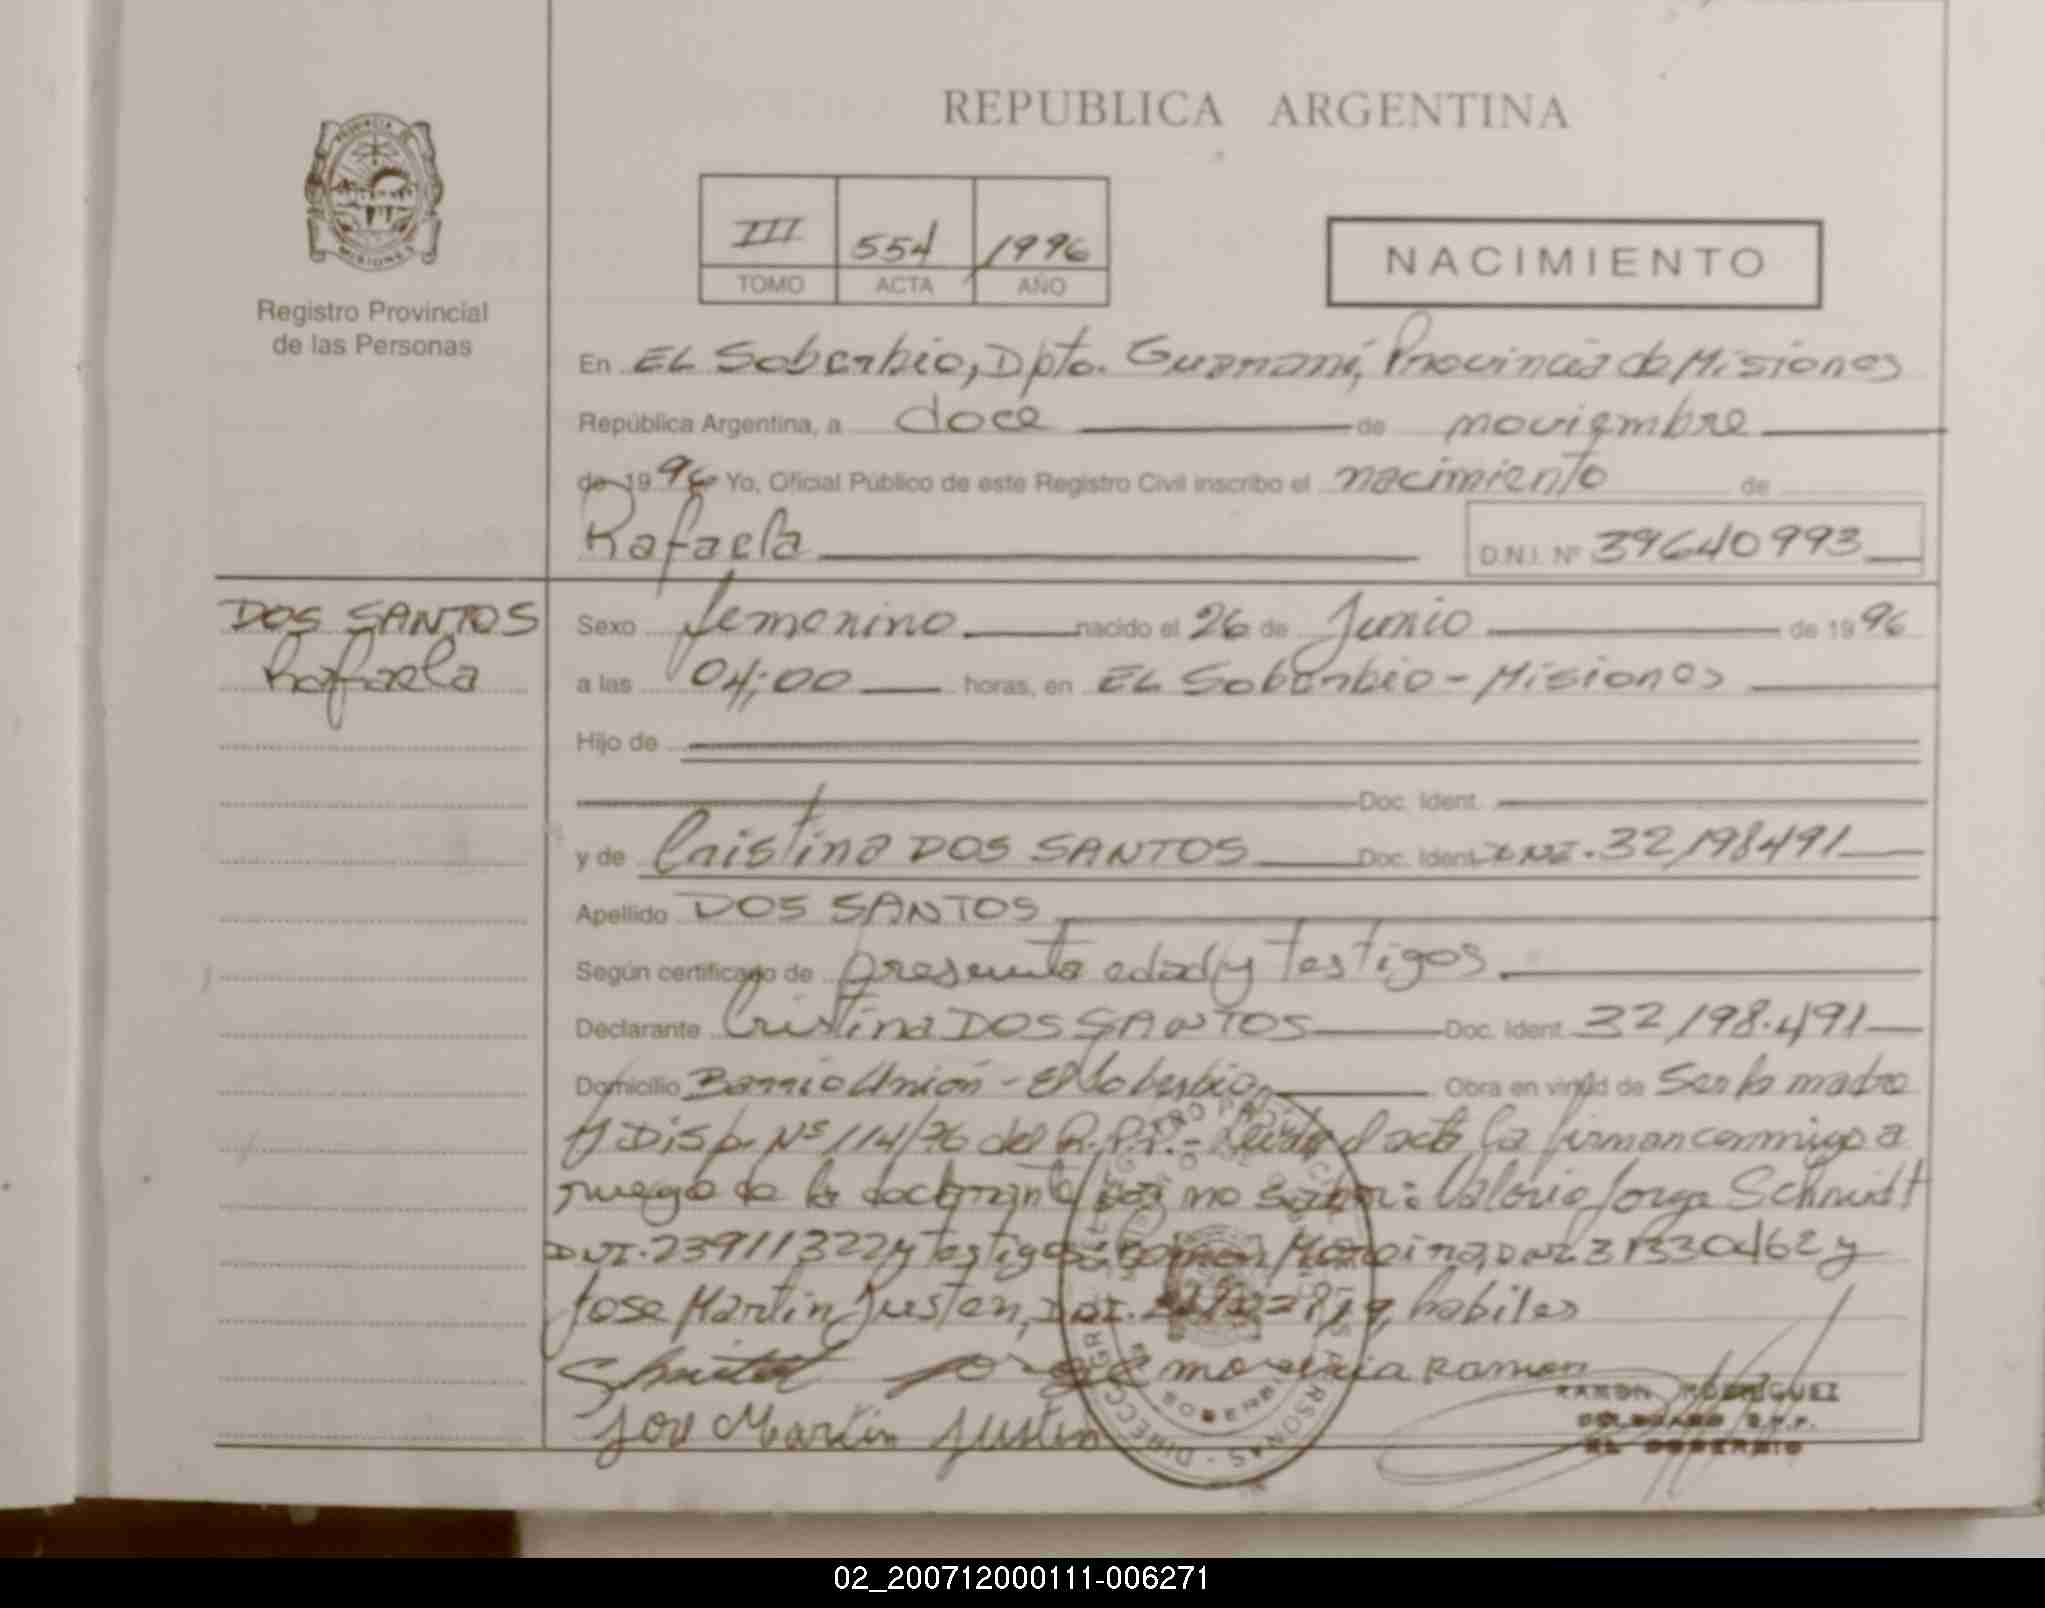 REPUBLICA ARGENTINA
PROVINCIA DE
MISIONES
Registro Provincial
de las Personas
III 554 1996
TOMO ACTA AÑO
NACIMIENTO
En EL Soberbio, Dpto. Guaraní, Provincia de Misiones
República Argentina, a doce de noviembre
de 1996 Yo, Oficial Público de este Registro Civil inscribo el nacimiento de
Rafaela D.N.I. Nº 39640993
DOS SANTOS
Rafaela
Sexo femenino nacido el 26 de Junio de 1996
a las 04;00 horas, en EL Soberbio - Misiones
Hijo de
Doc. Ident.
y de Cristina DOS SANTOS Doc. Ident. DNI. 32,198491
Apellido DOS SANTOS
Según certificado de presunta edad y testigos
Declarante Cristina DOS SANTOS Doc. Ident. 32,198.491
Domicilio Barrio Unión - El Soberbio Obra en virtud de Ser la madre
y Disp. Nº 114/76 del R.P.P.- Leida el acta la firman conmigo a
ruego de la declarante por no saber: Valerio Jorge Schmidt
DNI. 23911322 y testigos: Ramon Moreira, DNI 31330462 y
Jose Martin Justen, DNI. habiles
moreira Ramon
Jose Martin Justen
RAMON RODRIGUEZ
DELEGADO R.P.P.
EL SOBERBIO
02_200712000111-006271